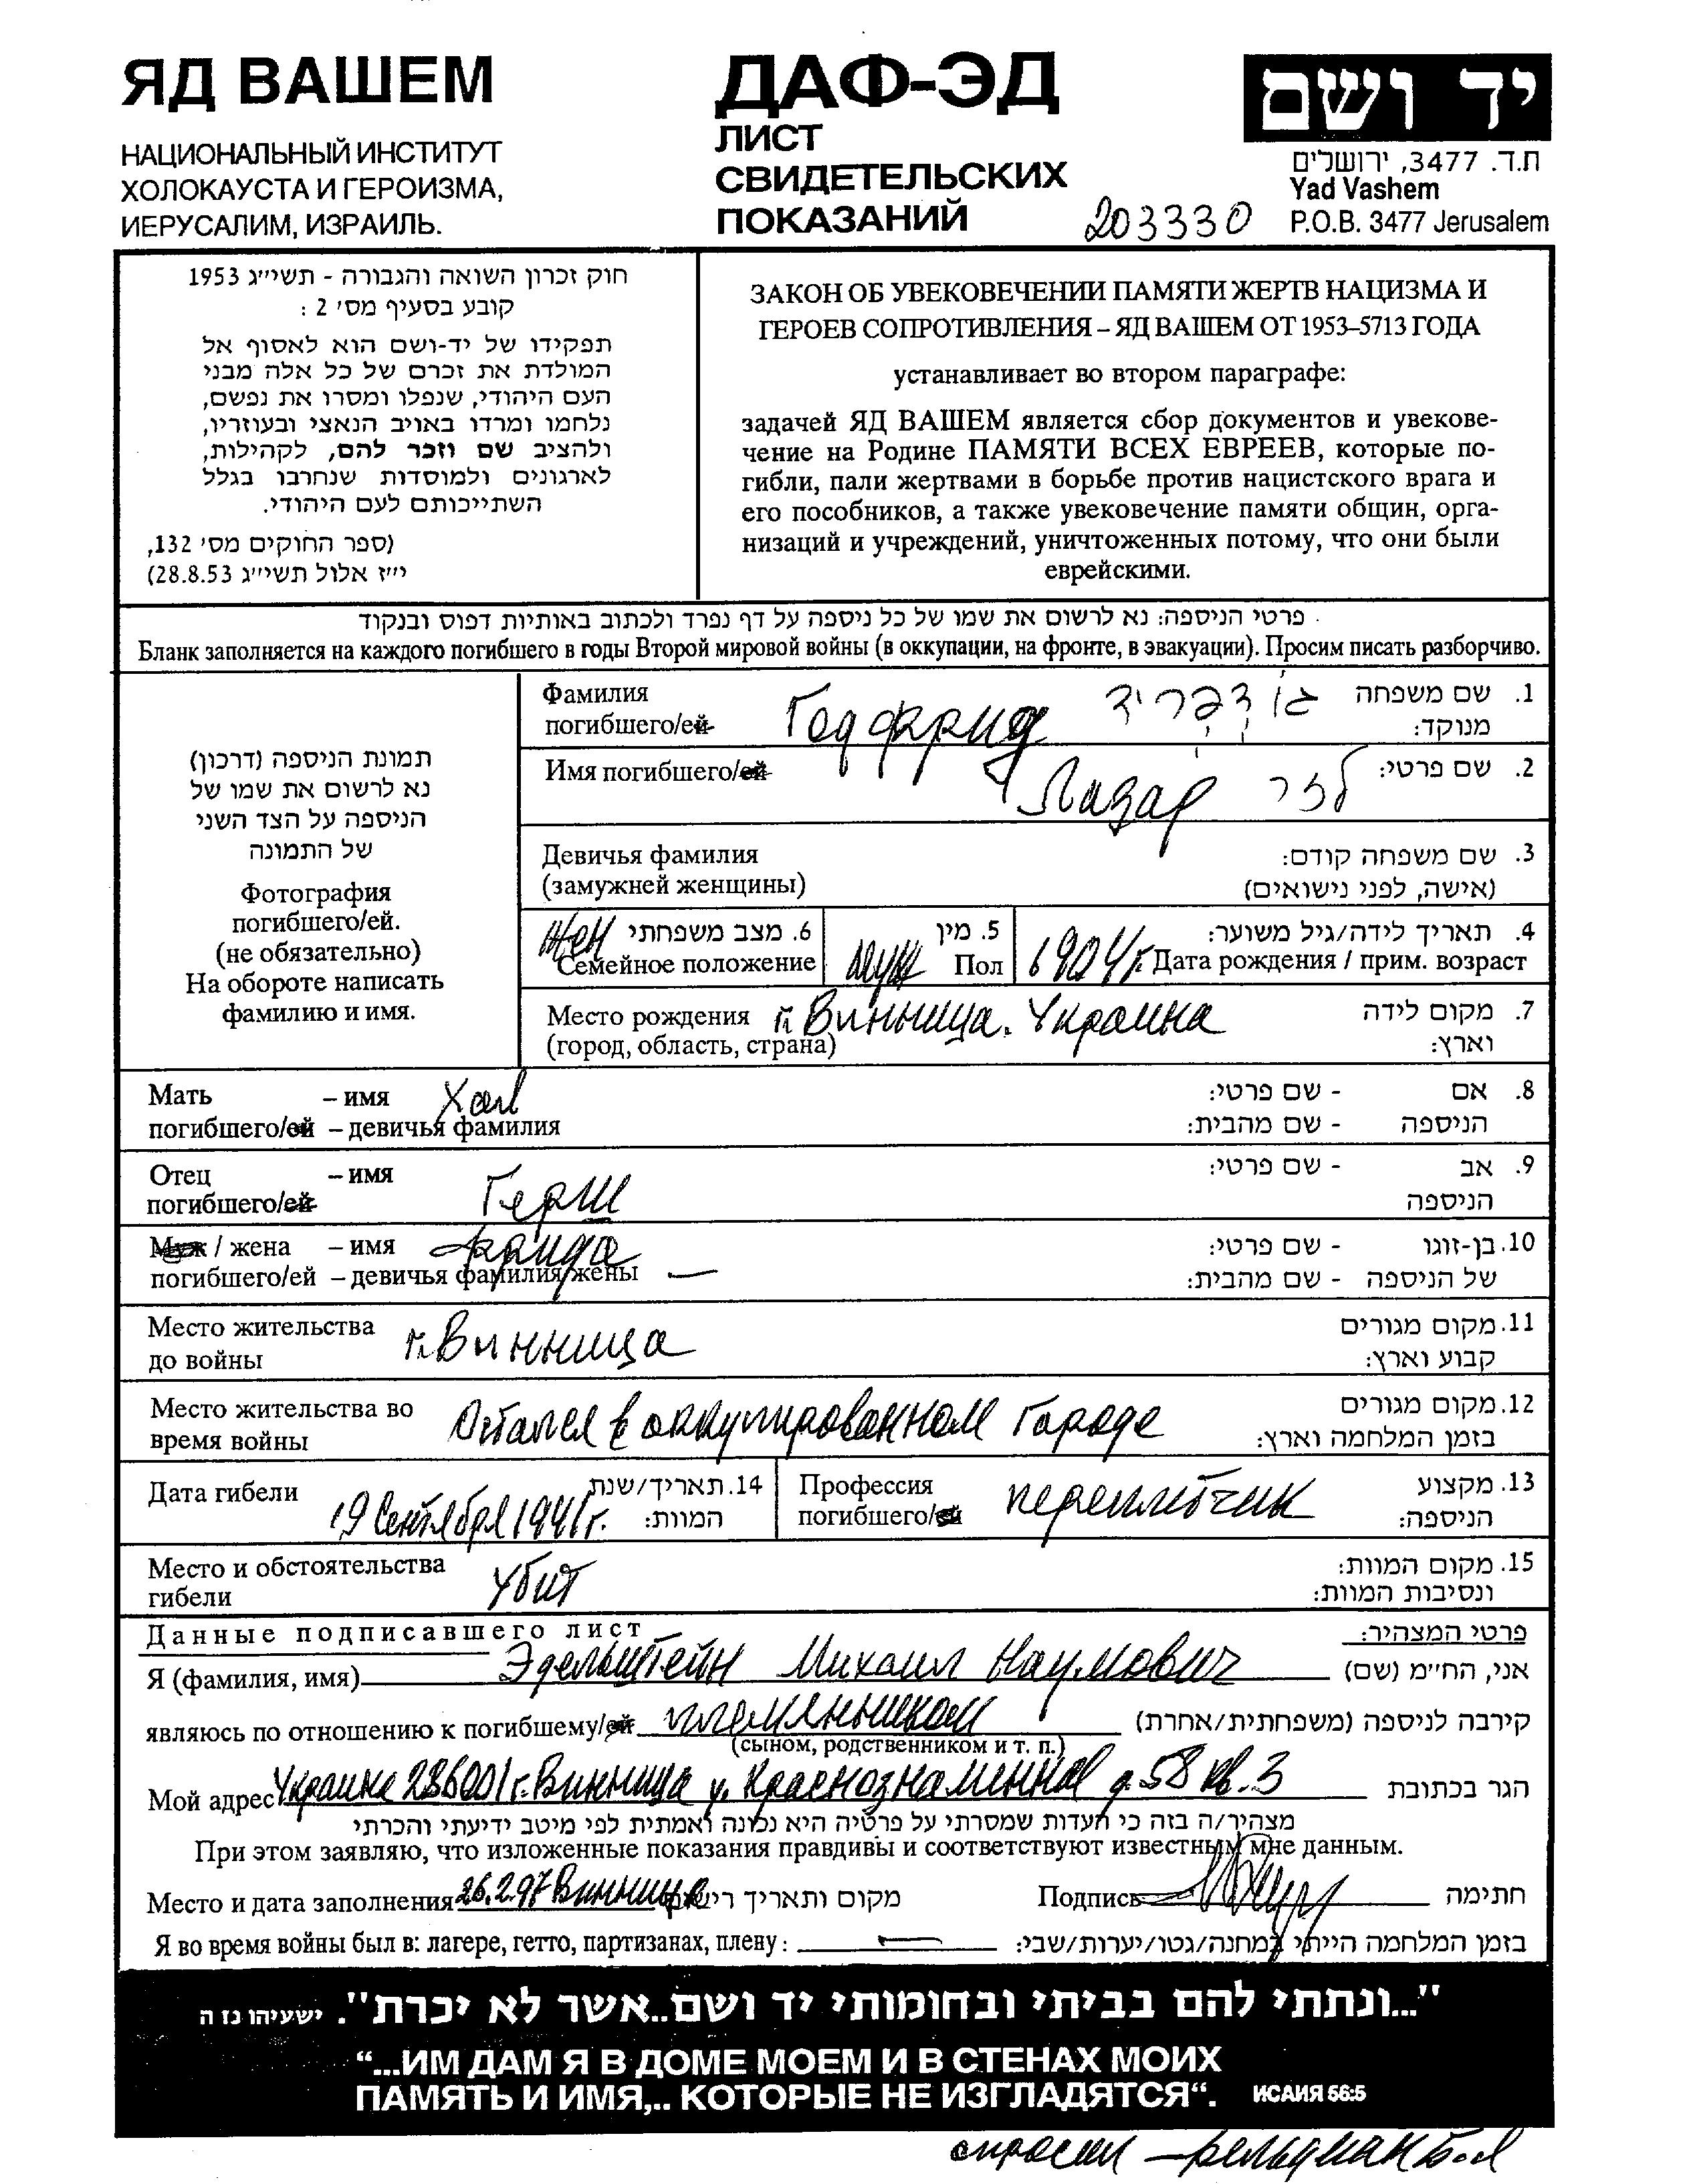 ЯД ВАШЕМ
НАЦИОНАЛЬНЫЙ ИНСТИТУТ
ХОЛОКАУСТА И ГЕРОИЗМА,
ИЕРУСАЛИМ, ИЗРАИЛЬ.
ДАФ-ЭД
ЛИСТ
СВИДЕТЕЛЬСКИХ
ПОКАЗАНИЙ
203330
יד ושם
ת.ד. 3477, ירושלים
Yad Vashem
P.O.B. 3477 Jerusalem
חוק זכרון השואה והגבורה - תשי״ג 1953
קובע בסעיף מס׳ 2 :
תפקידו של יד-ושם הוא לאסוף אל
המולדת את זכרם של כל אלה מבני
העם היהודי, שנפלו ומסרו את נפשם,
נלחמו ומרדו באויב הנאצי ובעוזריו,
ולהציב שם וזכר להם, לקהילות,
לארגונים ולמוסדות שנחרבו בגלל
השתייכותם לעם היהודי.
(ספר החוקים מס׳ 132,
י״ז אלול תשי״ג 28.8.53)
ЗАКОН ОБ УВЕКОВЕЧЕНИИ ПАМЯТИ ЖЕРТВ НАЦИЗМА И
ГЕРОЕВ СОПРОТИВЛЕНИЯ – ЯД ВАШЕМ ОТ 1953–5713 ГОДА
устанавливает во втором параграфе:
задачей ЯД ВАШЕМ является сбор документов и увекове-
чение на Родине ПАМЯТИ ВСЕХ ЕВРЕЕВ, которые по-
гибли, пали жертвами в борьбе против нацистского врага и
его пособников, а также увековечение памяти общин, орга-
низаций и учреждений, уничтоженных потому, что они были
еврейскими.
פרטי הניספה: נא לרשום את שמו של כל ניספה על דף נפרד ולכתוב באותיות דפוס ובנקוד
Бланк заполняется на каждого погибшего в годы Второй мировой войны (в оккупации, на фронте, в эвакуации). Просим писать разборчиво.
תמונת הניספה (דרכון)
נא לרשום את שמו של
הניספה על הצד השני
של התמונה
Фотография
погибшего/ей.
(не обязательно)
На обороте написать
фамилию и имя.
Фамилия Годфрид גודפריד 1. שם משפחה
погибшего/ей מנוקד:
Имя погибшего/ей Лазар לזר 2. שם פרטי:
Девичья фамилия 3. שם משפחה קודם:
(замужней женщины) (אישה, לפני נישואים)
Жен 6. מצב משפחתי 5. מין 4. תאריך לידה/גיל משוער:
Семейное положение муж Пол 1904г. Дата рождения / прим. возраст
Место рождения г. Винница. Украина 7. מקום לידה
(город, область, страна) וארץ:
Мать – имя Хая 8. אם - שם פרטי:
погибшего/ей – девичья фамилия הניספה - שם מהבית:
Отец – имя Герш 9. אב - שם פרטי:
погибшего/ей הניספה
Муж / жена – имя Фрида 10. בן-זוגו - שם פרטי:
погибшего/ей – девичья фамилия жены — של הניספה - שם מהבית:
Место жительства г. Винница 11. מקום מגורים
до войны קבוע וארץ:
Место жительства во Остался в оккупированном городе 12. מקום מגורים
время войны בזמן המלחמה וארץ:
Дата гибели 19 Сентября 1941г. 14. תאריך/שנת המוות:
Профессия переплётчик 13. מקצוע
погибшего/ей הניספה:
Место и обстоятельства Убит 15. מקום המוות:
гибели ונסיבות המוות:
Данные подписавшего лист פרטי המצהיר:
Я (фамилия, имя) Эдельштейн Михаил Наумович אני, הח״מ (שם)
являюсь по отношению к погибшему/ей племянником קירבה לניספה (משפחתית/אחרת)
(сыном, родственником и т. п.)
Мой адрес Украина 286001 г. Винница у. Краснознаменная д. 58 кв. 3 הגר בכתובת
מצהיר/ה בזה כי העדות שמסרתי על פרטיה היא נכונה ואמתית לפי מיטב ידיעתי והכרתי
При этом заявляю, что изложенные показания правдивы и соответствуют известным мне данным.
Место и дата заполнения 26.2.97 Винница מקום ותאריך רישום Подпись חתימה
Я во время войны был в: лагере, гетто, партизанах, плену : — בזמן המלחמה הייתי במחנה/גטו/יערות/שבי:
"...ונתתי להם בביתי ובחומותי יד ושם...אשר לא יכרת". ישעיהו נז ה
“...ИМ ДАМ Я В ДОМЕ МОЕМ И В СТЕНАХ МОИХ
ПАМЯТЬ И ИМЯ,.. КОТОРЫЕ НЕ ИЗГЛАДЯТСЯ“. ИСАИЯ 56:5
опросил – Фельдман Б.Я